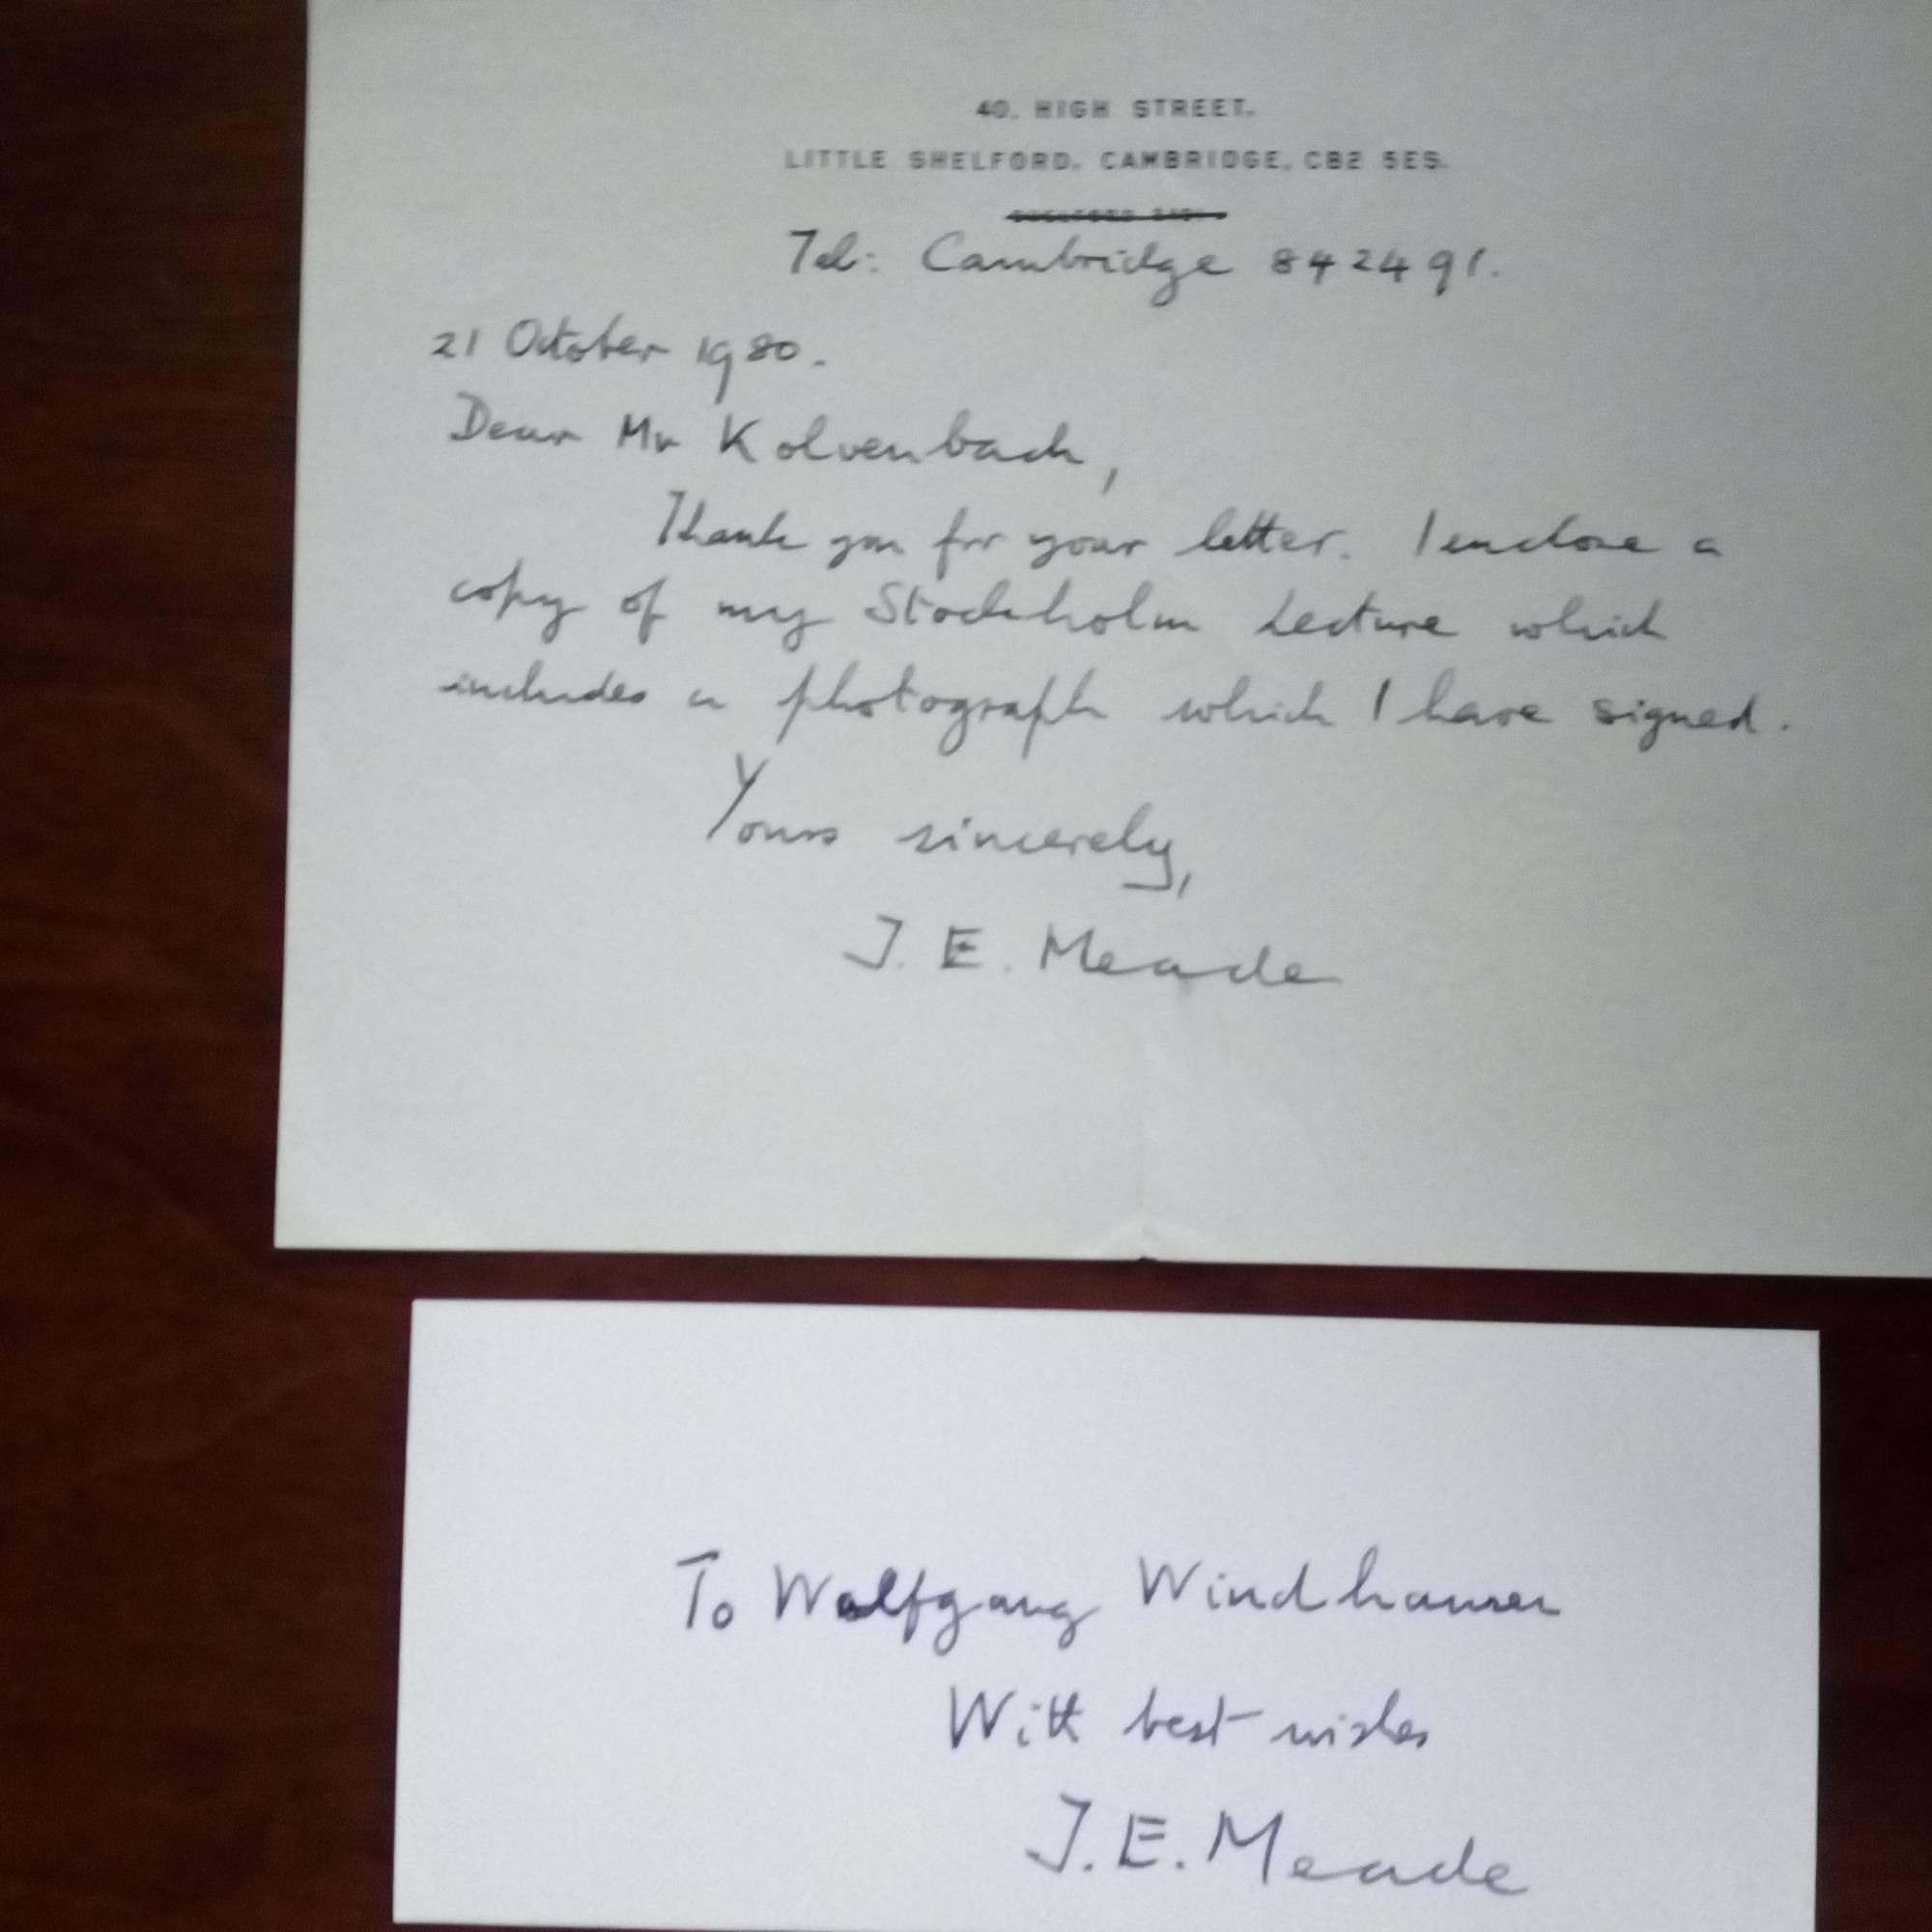 40, HIGH STREET,
LITTLE SHELFORD, CAMBRIDGE, CB2 5ES.
Tel: Cambridge 842491.
21 October 1980.
Dear Mr Kolvenbach,
Thank you for your letter. I enclose a
copy of my Stockholm Lecture which
includes a photograph which I have signed.
Yours sincerely,
J. E. Meade
To Wolfgang Windhausen
With best wishes
J. E. Meade